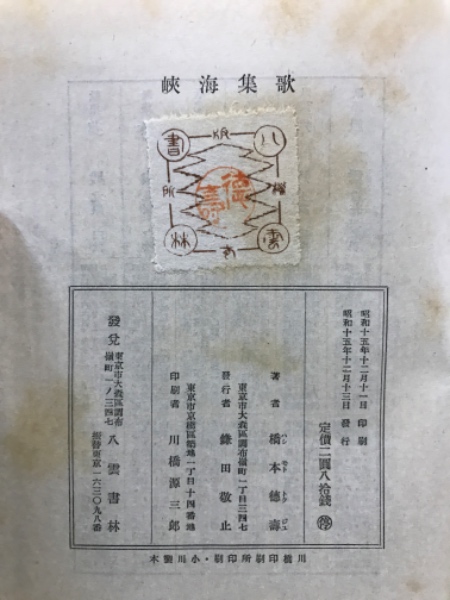 歌集海峽
八雲書林
版權所有
德壽
昭和十五年十二月十一日 印刷
昭和十五年十二月十三日 發行
定價二圓八拾錢 停
著者 橋本德壽
ハシモトトクジュ
東京市大森區調布嶺町一丁目三四七
發行者 鎌田敬止
東京市京橋區築地一丁目十四番地
印刷者 川橋源三郎
發兌 東京市大森區調布嶺町一ノ三四七 八雲書林
振替東京一六三〇九八番
川橋印刷所印刷・小川製本